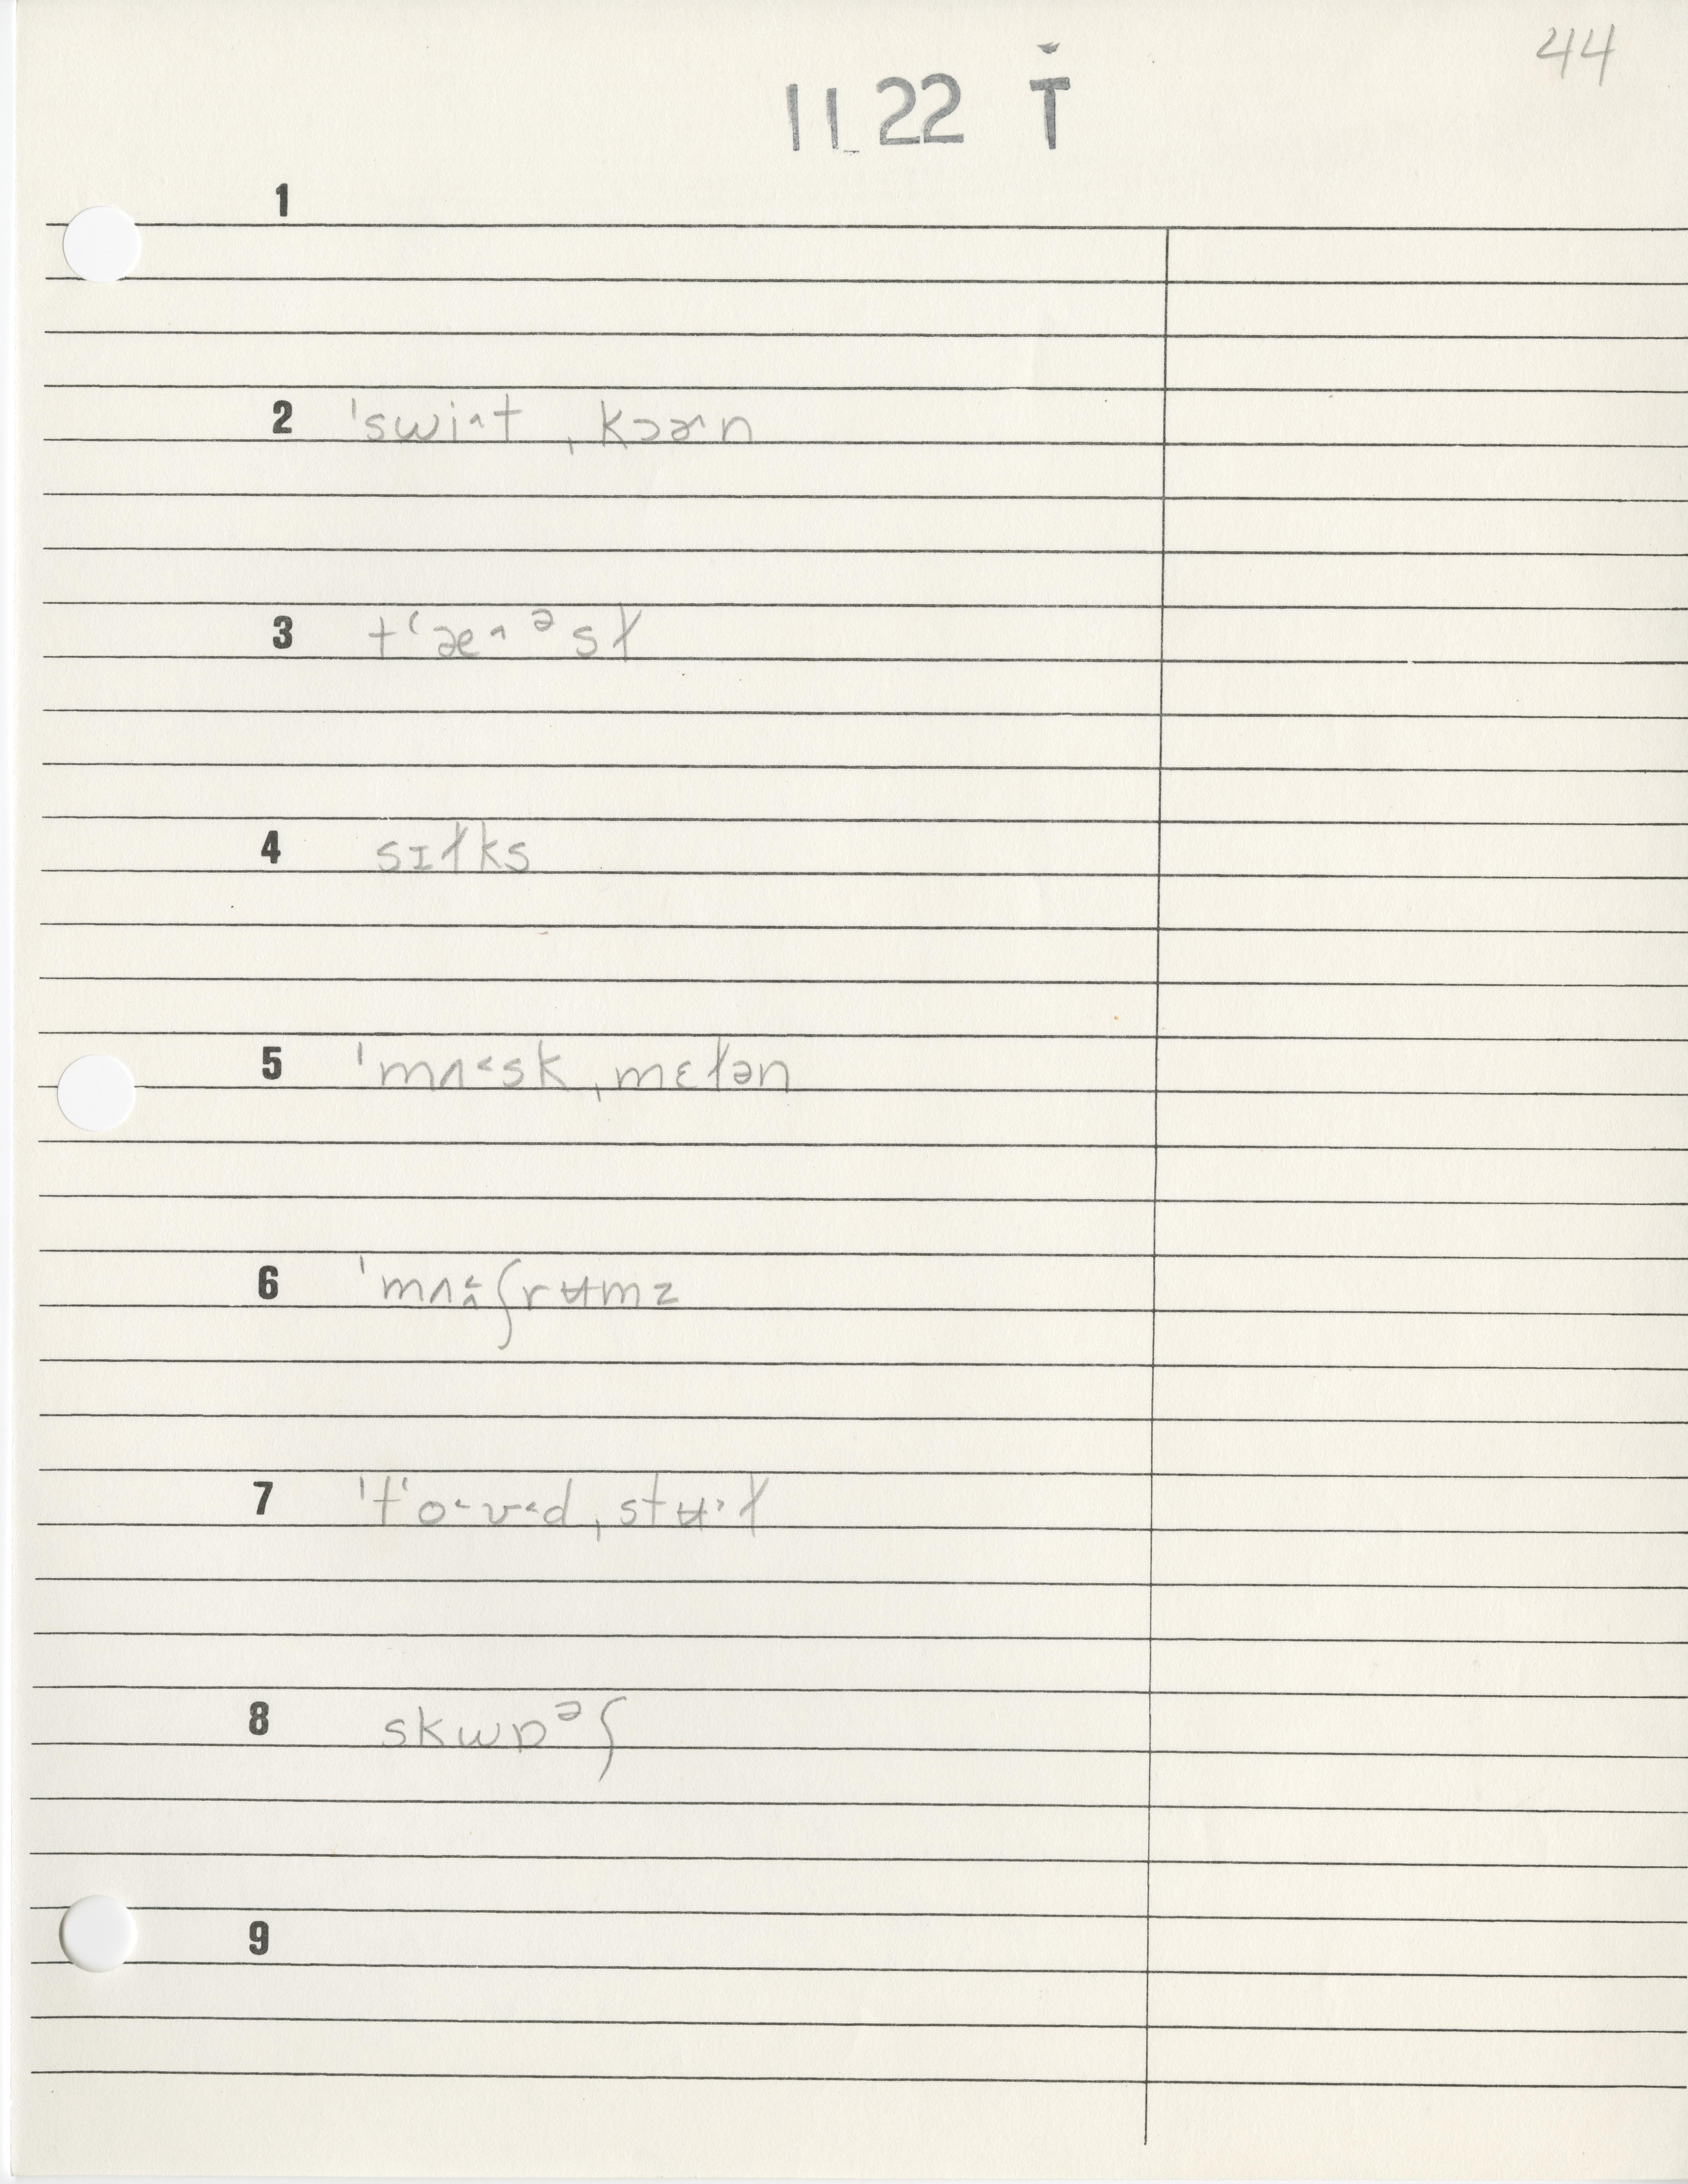 44
11 22 T̆
1
2 ˈswi˄t ˌkɔɚ˄n
3 tʻæ˄ᵊsɫ
4 sɪɫks
5 ˈmʌ˂sk ˌmɛɫən
6 ˈmʌ˂˄ʃrʉmz
7 ˈtʻo˂ʊ˂d ˌstʉ˃ɫ
8 skwɒᵊʃ
9